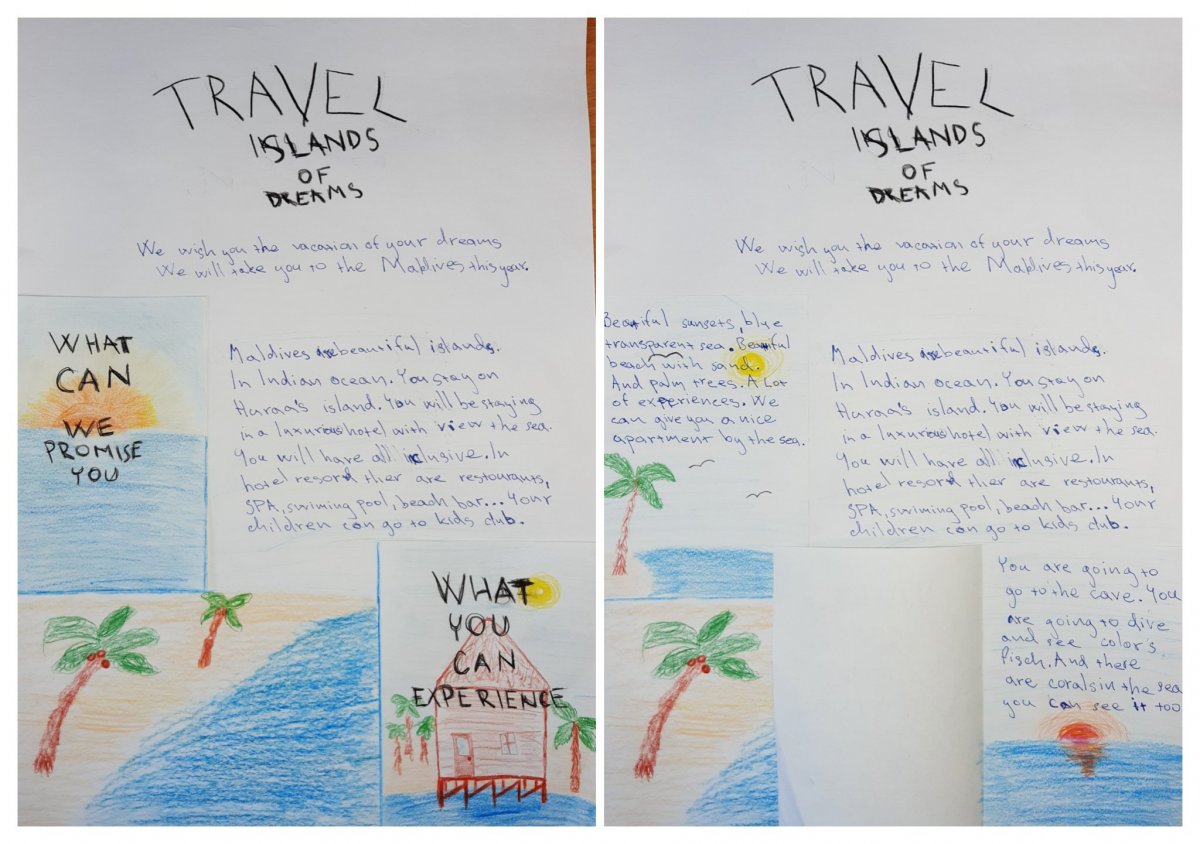 TRAVEL
ISLANDS
OF
DREAMS
We wish you the vacation of your dreams
We will take you to the Maldives this year.
WHAT
CAN
WE
PROMISE
YOU
Maldives are beautiful islands.
In Indian ocean. You stay on
Huraa's island. You will be staying
in a luxurious hotel with view the sea.
You will have all inclusive. In
hotel resord ther are restourants,
SPA, swiming pool, beach bar... Your
children can go to kids club.
WHAT
YOU
CAN
EXPERIENCE
TRAVEL
ISLANDS
OF
DREAMS
We wish you the vacation of your dreams
We will take you to the Maldives this year.
Beautiful sunsets, blue
transparent sea. Beautiful
beach with sand.
And palm trees. A Lot
of experiences. We
can give you a nice
apartment by the sea.
Maldives are beautiful islands.
In Indian ocean. You stay on
Huraa's island. You will be staying
in a luxurious hotel with view the sea.
You will have all inclusive. In
hotel resord ther are restourants,
SPA, swiming pool, beach bar... Your
children can go to kids club.
You are going to
go to the cave. You
are going to dive
and see color's
fisch. And there
are corals in the sea
you can see it too